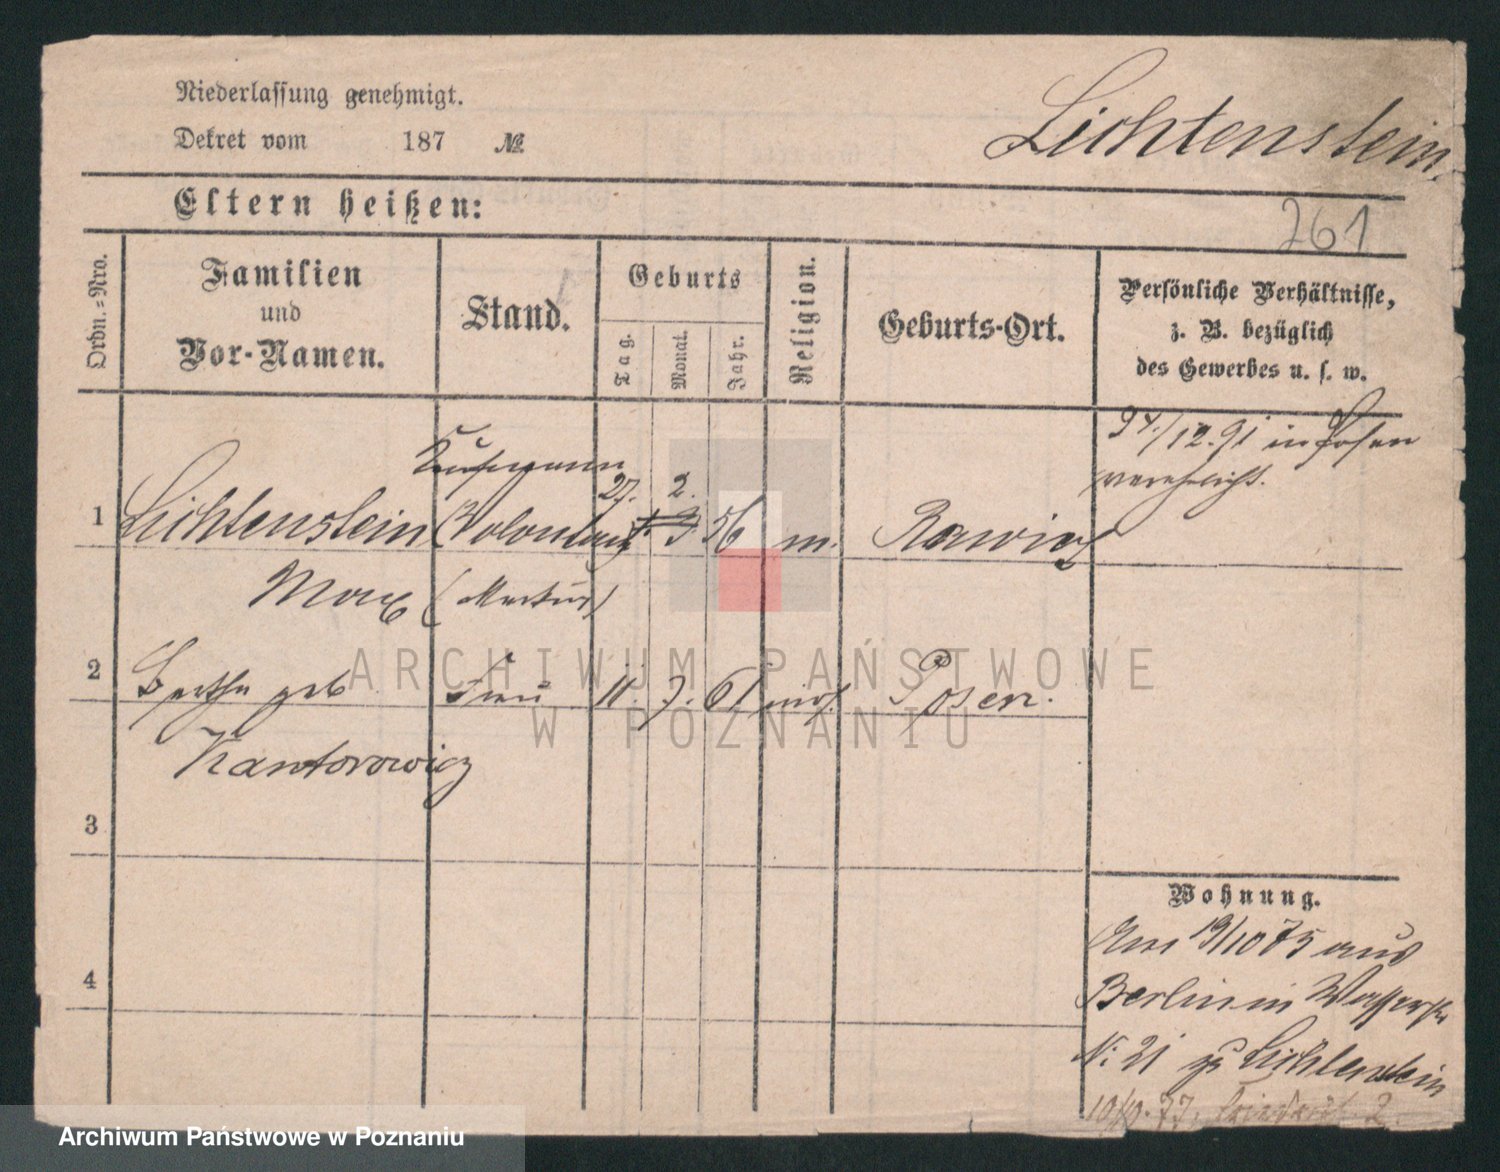 Niederlassung genehmigt.
Dekret vom 187 №
Lichtenstein.
Eltern heißen:
261
Ordn.=Nro.
Familien
und
Vor-Namen.
Stand.
Geburts
Tag.
Monat.
Jahr.
Religion.
Geburts-Ort.
Persönliche Verhältnisse,
z. B. bezüglich
des Gewerbes u. s. w.
/12. 91 in Posen
verehelicht.
Kaufmann
27. 2.
1 Lichtenstein (Volontair 56 m. Rawicz
Max
2 Bertha geb Frau 11. 7. 61 mos. Posen.
Kantorowicz
3
4
Wohnung.
Am 19/10 75 aus
Berlin in Wasserstr
N: 21 zu Lichtenstein
10/10. 77. 2.
ARCHIWUM PAŃSTWOWE
W POZNANIU
Archiwum Państwowe w Poznaniu